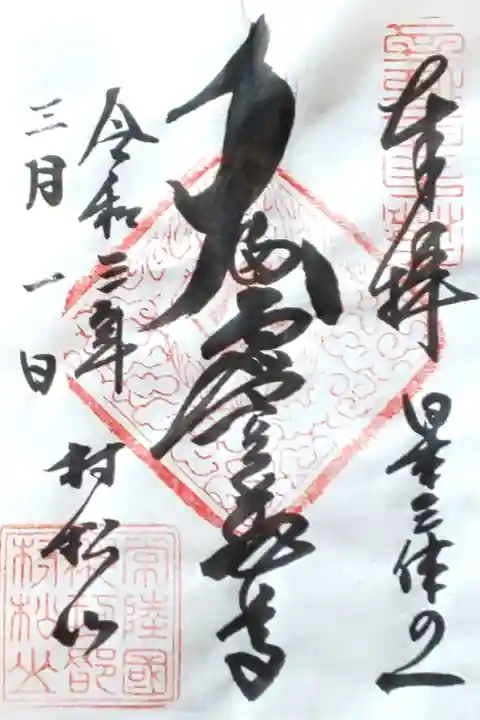 奉拝
日本三体の一
大満虚空蔵尊
令和三年
三月一日
村松山
常陸國
那珂郡
村松山